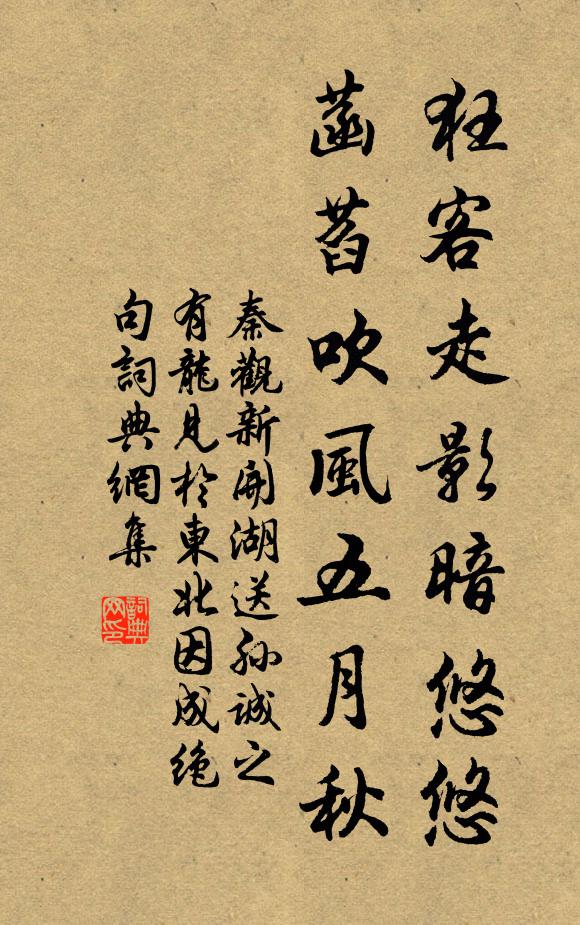 狂客走影暗悠悠
菡萏吹風五月秋
秦觀新開湖送孫誠之
有龍見於東北因成絶
句詞典網集
詞典網印